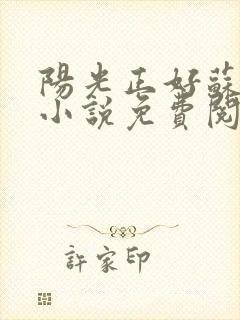 陽光正好蘇
小說免費閱
許家印